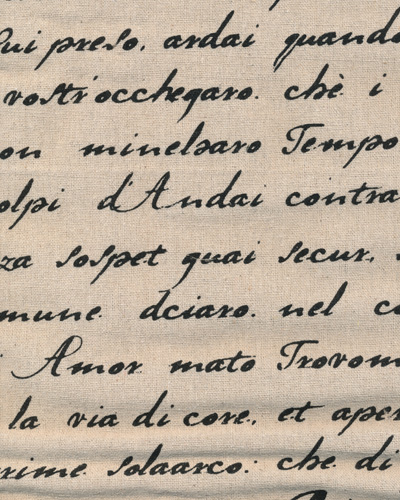 fui preso. ardai quando
vostr'occhegaro. chè i
on minelsaro Tempo
olpi d'Andai contra
za sospet guai secur.
mune dciaro. nel co
Amor mato Trovom
la via di core, et aper
rime solaarco: che di